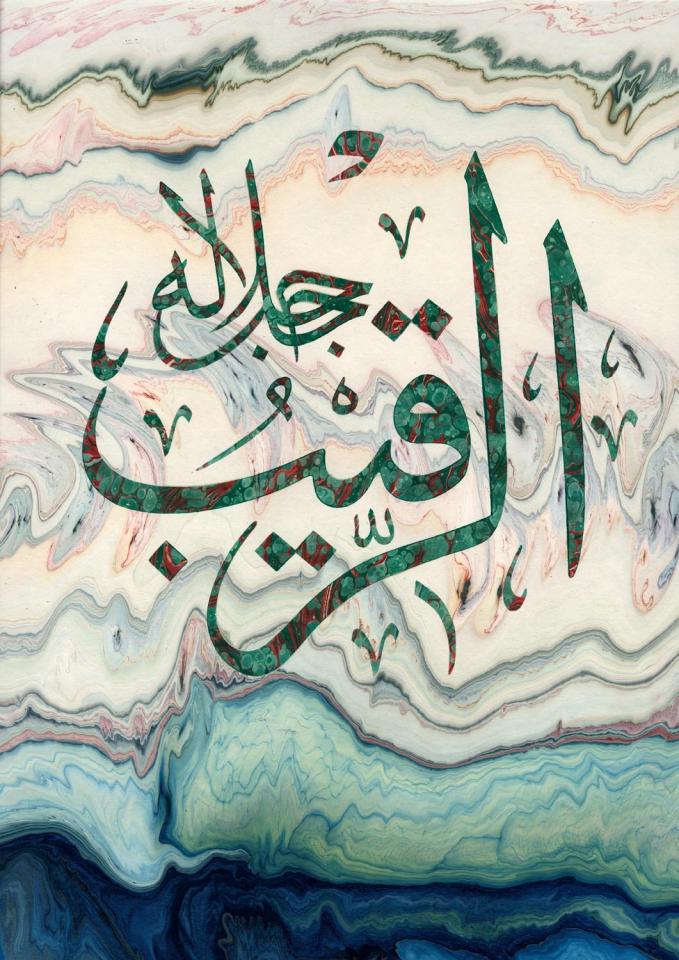 الرَّقِيبُ
جل جلاله